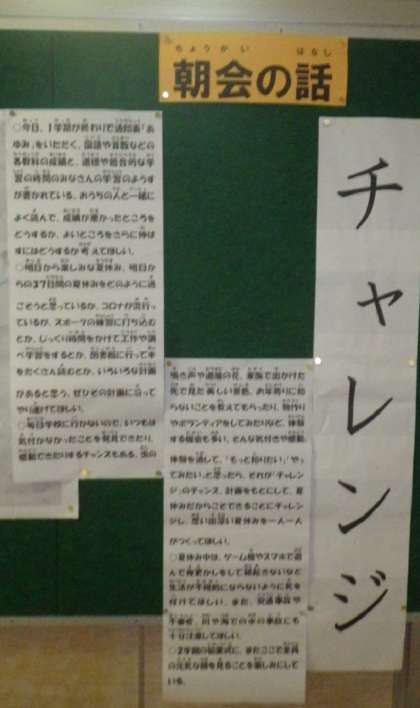 朝会の話
チャレンジ
○今日、1学期が終わりで通知表「あ
ゆみ」をいただく。国語や算数などの
各教科の成績と、道徳や総合的な学
習の時間のみなさんの学習のようす
が書かれている。おうちの人と一緒に
よく読んで、成績が悪かったところを
どうするか、よいところをさらに伸ば
すにはどうするか考えてほしい。
○明日から楽しみな夏休み。明日か
らの37日間の夏休みをどのように過
ごそうと思っているか。コロナが流行っ
ているが、スポーツの練習に打ち込む
とか、じっくり時間をかけて工作や調
べ学習をするとか、図書館に行って本
をたくさん読むとか、いろいろな計画
があると思う。ぜひその計画に沿って
やり遂げてほしい。
○毎日学校に行かないので、いつもは
気付かなかったことを発見できたり、
感動できたりするチャンスもある。虫の
鳴き声や道端の花、家族で出かけた
先で見た美しい景色、お年寄りに知
らないことを教えてもらったり、物作り
やボランティアをしてみたりなど、体験
する機会も多い。そんな気付きや感動、
体験を通して、「もっと知りたい」「やっ
てみたい」と思ったら、それが「チャレン
ジ」のチャンス。計画をもとにして、夏
休みだからこそできることにチャレン
ジし、思い出深い夏休みを一人一人
がつくってほしい。
○夏休み中は、ゲーム機やスマホで遊
んで夜更かしをして朝起きないなど
生活が不規則にならないように気を
付けてほしい。また、交通事故や
不審者、川や海での水の事故にも
十分注意してほしい。
○2学期の始業式に、またここで全員
の元気な顔を見ることを楽しみにして
いる。